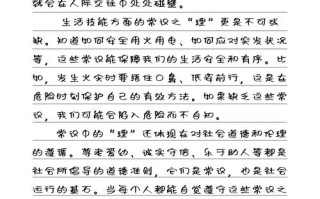 就会在人际交往中处处碰壁。
生活技能方面的常识之“理”更是不可或
缺。知道如何安全用火用电、如何应对突发状况
等，这些常识能保障我们的生活安全和有序。比
如，发生火灾时要捂住口鼻、低姿前行，这是在
危险时刻保护自己的有效方法。如果缺乏这些常
识，我们可能会陷入危险而不自知。
常识中的“理”还体现在对社会道德和伦理
的遵循。尊老爱幼、诚实守信、乐于助人等都是
社会所倡导的道德准则，它们是常识，也是社会
运行的基石。当每个人都能自觉遵守这些常识之